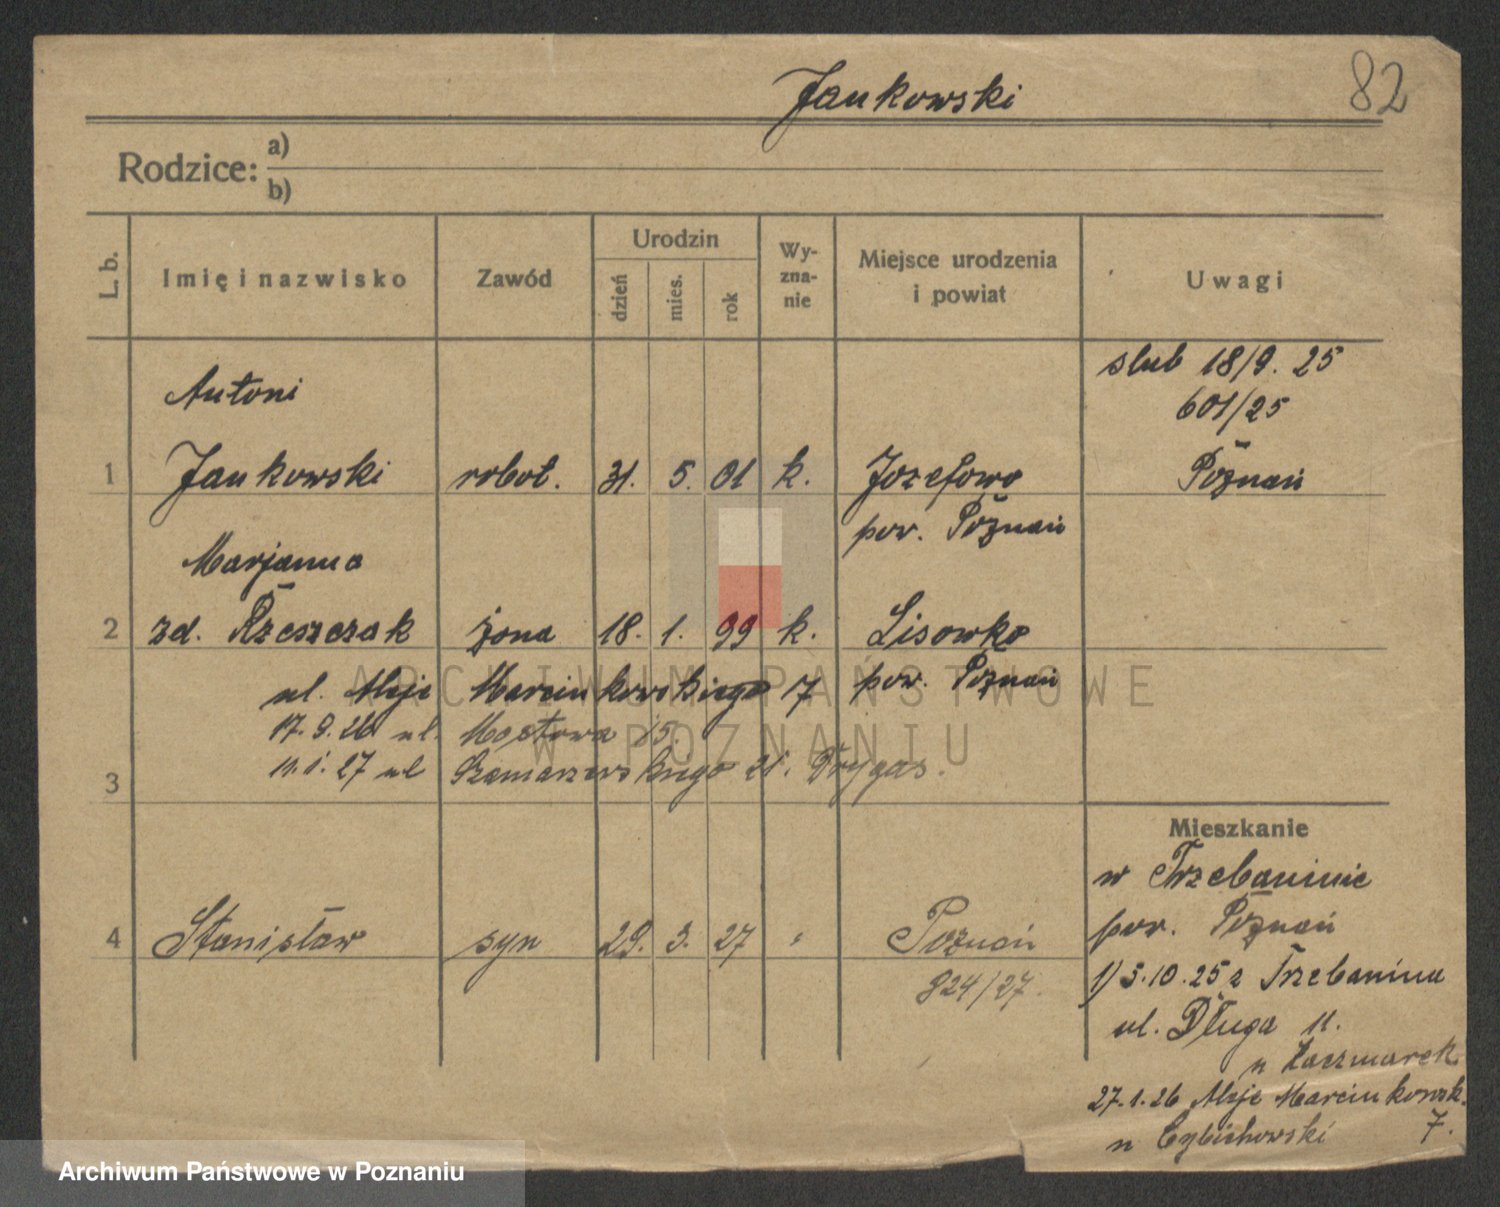 Jankowski
82
Rodzice:
a)
b)
L. b.
Imię i nazwisko
Zawód
Urodzin
dzień
mies.
rok
Wy-
zna-
nie
Miejsce urodzenia
i powiat
Uwagi
slub 18/9. 25
601/25
Poznań
Antoni
1 Jankowski robot. 31. 5. 01 k. Jozefowo
pow. Poznań
Marjanna
2 zd. Rzeszczak żona 18. 1. 99 k. Lisowko
pow. Poznań
ul. Aleje Marcinkowskiego 7
17.9.26 ul. Mostowa 15.
11.1.27 ul Szamarzewskiego 21. Drygas.
3
4 Stanisław syn 29. 3. 27 " Poznań
824/27.
Mieszkanie
w Trzebaninie
pow. Poznań
1) 5.10.25 z Trzebanina
ul. Długa 11.
n Kaczmarek
27.1.26 Aleje Marcinkowsk.
7.
n Cybichowski
ARCHIWUM PAŃSTWOWE
W POZNANIU
Archiwum Państwowe w Poznaniu